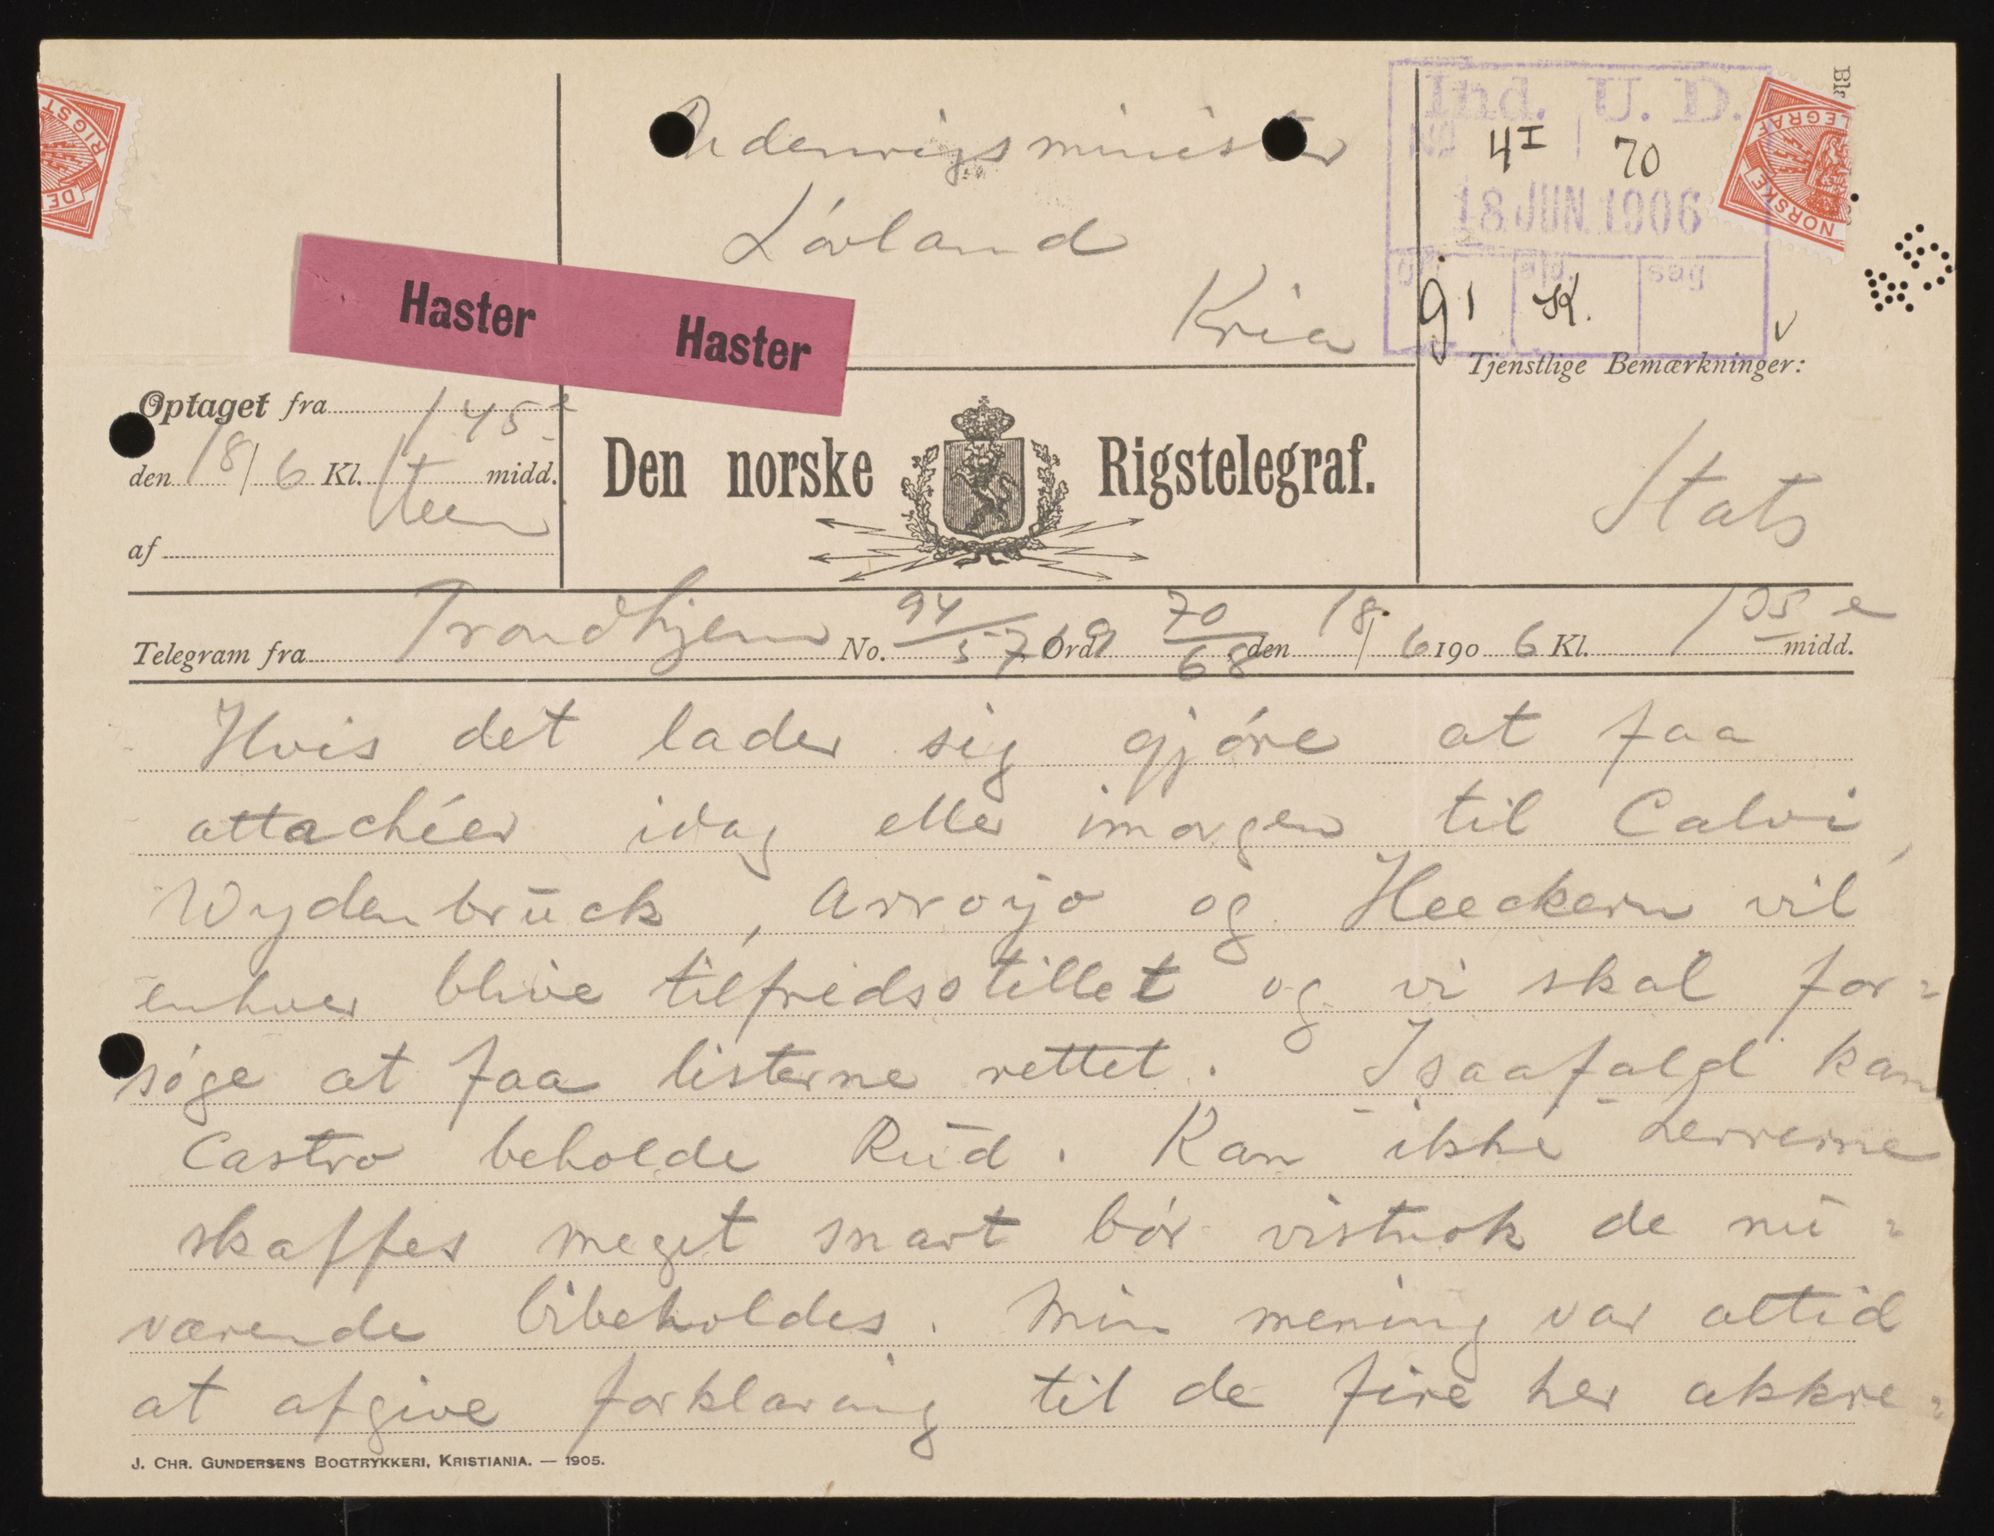 Udenrigsminister
Lóvland
Kria
Ind. U. D.
4 I 70
18 JUN. 1906
K.
Haster Haster
Tjenstlige Bemærkninger:
Stats
Optaget fra
den 18/6 Kl. 1 45 e midd.
af Steen
Den norske Rigstelegraf.
Telegram fra Trondhjem No. 94/576 Ord 70/68 den 18/6 1906 Kl. 1 05 e midd.
Hvis det lader sig gjóre at faa
attachéer idag eller imorgen til Calvi,
Wydenbrück, Arroyo og Heeckern vil
enhver blive tilfredsstillet og vi skal for=
søge at faa listerne rettet. Isaafald kan
Castro beholde Rūd. Kan ikke herrerne
skaffes meget snart bór vistnok de nū=
værende bibeholdes. Min mening var altid
at afgive forklaring til de fire her akkre=
J. CHR. GUNDERSENS BOGTRYKKERI, KRISTIANIA. — 1905.